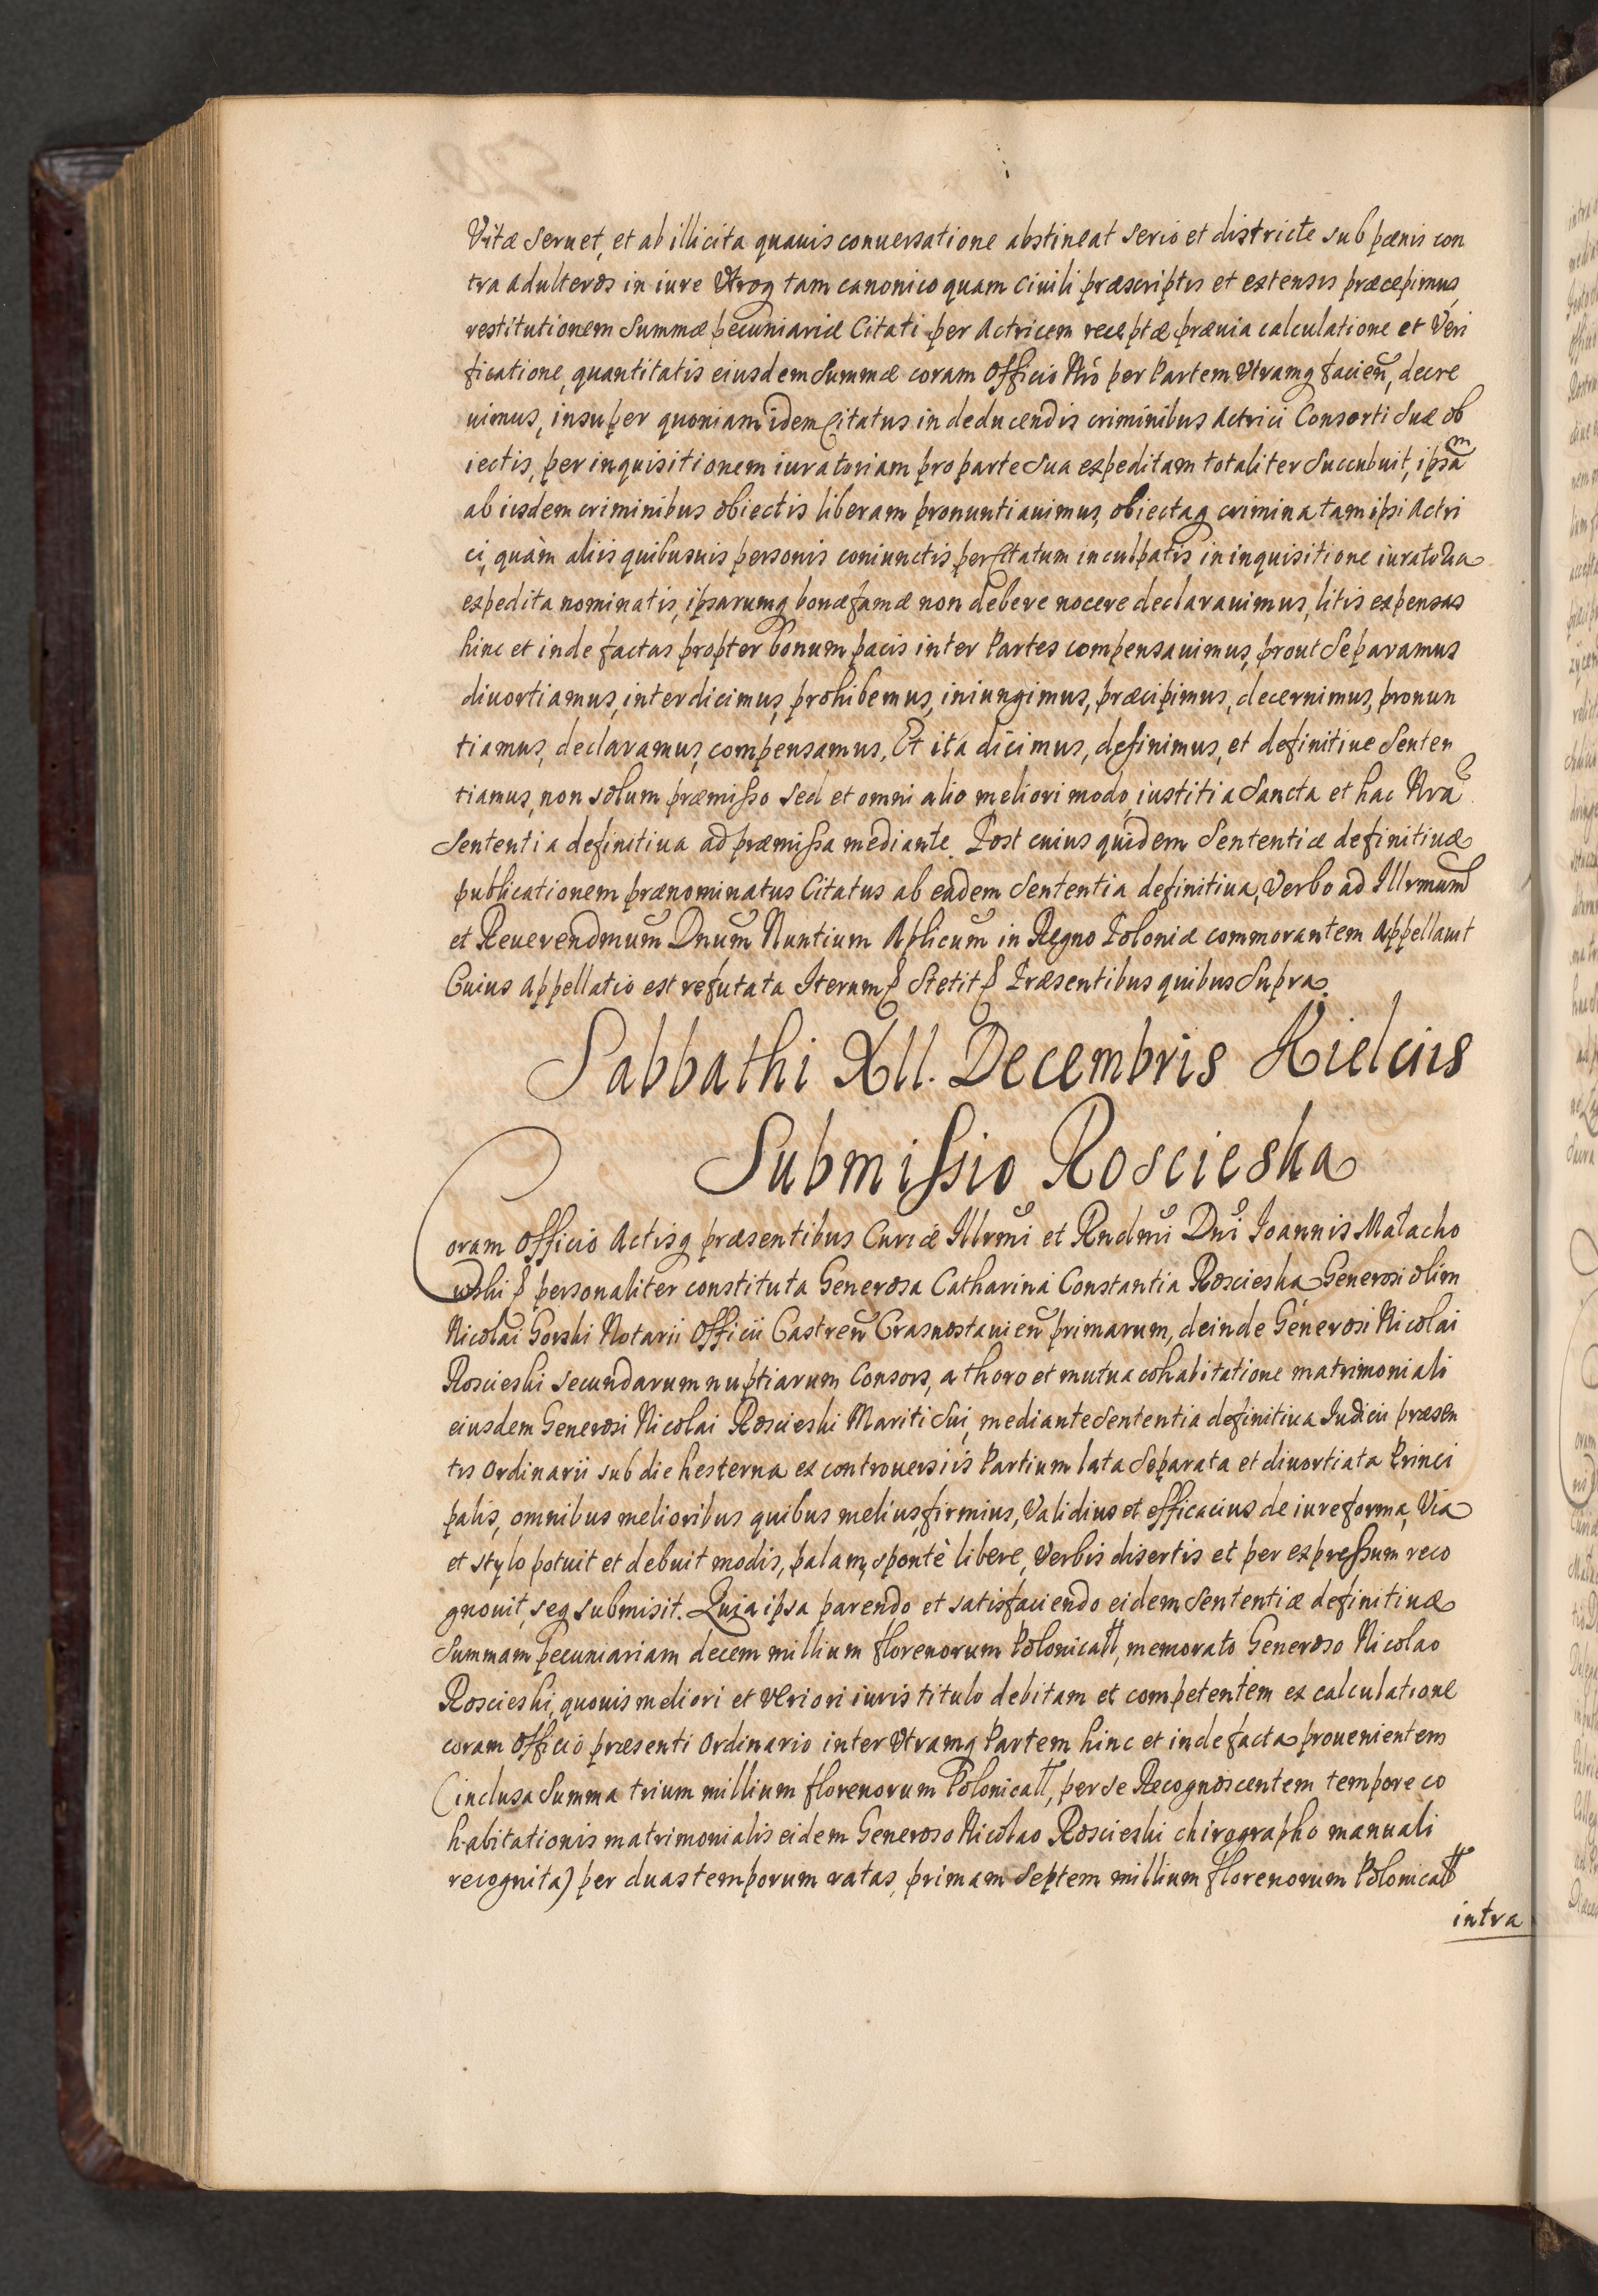 Vitæ seruet, et ab illicita quauis conuersatione abstineat serio et districte sub pœnis con
tra adulteros in iure Vtroq tam canonico quam Ciuili præscriptis et extensis præcepimus,
restitutionem Summæ pecuniariæ Citati per Actricem receptæ præuia calculatione et Veri
ficatione, quantitatis eiusdem Summæ coram Officio Nrō per Partem Vtramq facien̄, decre
uimus, insuper quoniam idem Citatus in deducendis criminibus Actrici Consorti Suæ ob
iectis, per inquisitionem iuratoriam pro parte Sua expeditam totaliter Succubuit, ipsam
ab iisdem criminibus obiectis liberam pronuntiauimus, obiectaq crimina tam ipsi Actri
ci, quàm aliis quibusuis personis coniunctis per Citatum inculpatis in inquisitione iuratoria
expedita nominatis, ipsarumq bonæ famæ non debere nocere declarauimus, litis expensas
hinc et inde factas propter bonum pacis inter Partes compensauimus, prout Separamus
diuortiamus, interdicimus, prohibemus, iniungimus, præcipimus, decernimus, pronun
tiamus, declaramus, compensamus, Et ita dicimus, definimus, et definitiue Senten
tiamus, non solum præmisso sed et omni alio meliori modo, iustitia Sancta et hac Nrā
Sententia definitiua ad præmissa mediante. Post cuius quidem Sententiæ definitiuæ
publicationem prænominatus Citatus ab eadem Sententia definitiua, Verbo ad Illrmum
et Reuerendmum Dnum Nuntium Aplicum in Regno Poloniæ commorantem Appellauit
Cuius Appellatio est refutata Iterum ꝑ Stetit ꝑ Præsentibus quibus Supra.
Sabbathi XII. Decembris Kielciis
Submissio Roscieska
Coram Officio Actisq præsentibus Curiæ Illrmi et Rndmi Dni Ioannis Małacho
wski ꝑ personaliter constituta Generosa Catharina Constantia Roscieska Generosi olim
Nicolai Gorski Notarii Officii Castren̄ Crasnostauien̄ primarum, deinde Generosi Nicolai
Roscieski secundarum nuptiarum Consors, a thoro et mutua cohabitatione matrimoniali
eiusdem Generosi Nicolai Roscieski Mariti Sui, mediante Sententia definitiua Iudicii præsen
tis Ordinarii sub die hesterna ex controuersiis Partium lata Separata et diuortiata Princi
palis, omnibus melioribus quibus melius, firmius, Validius et efficacius de iure forma, Via
et stylo potuit et debuit modis, palam, spontè libere, Verbis disertis et per expressum reco
gnouit, seq submisit. Quia ipsa parendo et satisfaciendo eidem Sententiæ definitiuæ
Summam pecuniariam decem millium florenorum Polonicall, memorato Generoso Nicolao
Roscieski, quouis meliori et Vtiori iuris titulo debitam et competentem ex calculatione
coram Officio præsenti Ordinario inter Vtramq Partem hinc et inde facta prouenientem
(inclusa Summa trium millium florenorum Polonicall, per se Recognoscentem tempore co
habitationis matrimonialis eidem Generoso Nicolao Roscieski chirographo manuali
recognita) per duas temporum ratas, primam Septem millium florenorum Polonicall
intra